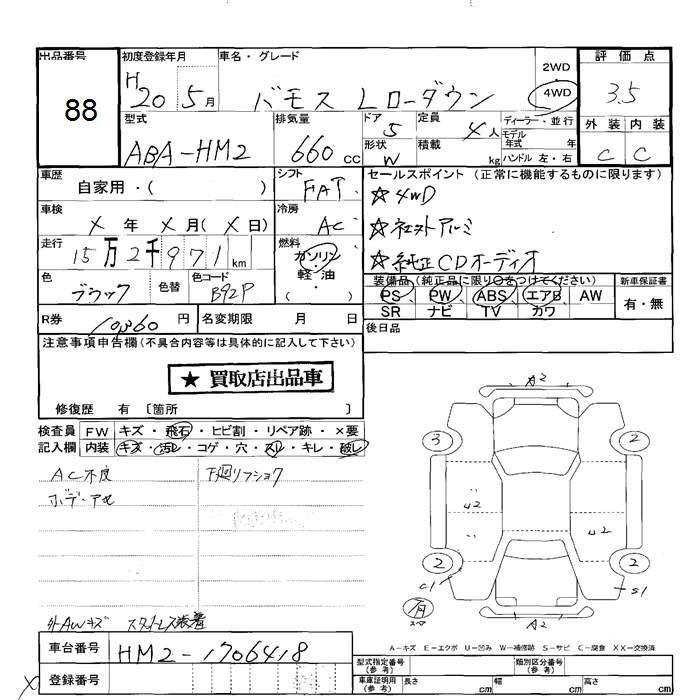 出品番号
88
初度登録年月
H
20 5月
車名・グレード
バモス Lローダウン
2WD
・
4WD
評価点
3.5
外装 内装
C C
型式
ABA-HM2
排気量
660 cc
ドア
5
形状
W
定員
4人
積載
kg
ディーラー・並行
モデル
年式 年
ハンドル 左・右
車歴
自家用・( )
シフト
FAT
セールスポイント (正常に機能するものに限ります)
☆4WD
☆社外アルミ
☆純正CDオーディオ
車検
X 年 X 月( X 日)
冷房
AC
走行
15万2千971km
燃料
ガソリン
軽・油
( )
色
ブラック
色替
色コード
B92P
装備品(純正品に限り○をつけてください)
PS PW ABS エアB AW
SR ナビ TV カワ
新車保証書
有・無
R券 10360 円
名変期限 月 日
後日品
注意事項申告欄(不具合内容等は具体的に記入して下さい)
★買取店出品車
修復歴 有 〔箇所 〕
検査員
記入欄
FW キズ・飛石・ヒビ割・リペア跡・×要
内装 キズ・汚レ・コゲ・穴・スレ・キレ・破レ
AC不良
下廻リフショク
外AWキズ
車台番号 HM2-1706418
登録番号
A2
3
2
U2
U2
2
2
C1
S1
A2
A-キズ E-エクボ U-凹み W-補修跡 S-サビ C-腐食 XX-交換済
型式指定番号
(参考)
類別区分番号
(参考)
車庫証明用
(参考)
長さ cm
幅 cm
高さ cm